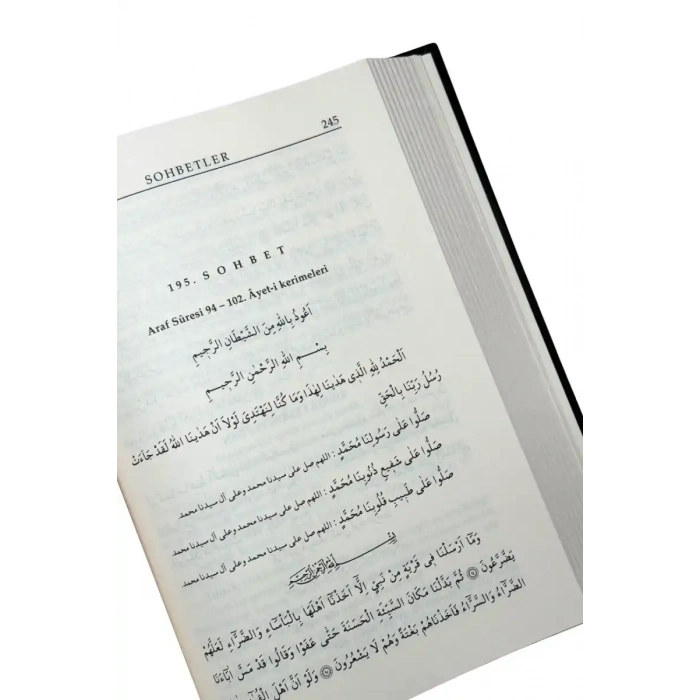 245
SOHBETLER
195. SOHBET
Araf Sûresi 94 – 102. Âyet-i kerimeleri
اَعُوذُ بِاللّٰهِ مِنَ الشَّيْطَانِ الرَّجٖيمِ
بِسْــمِ اللّٰهِ الرَّحْمٰنِ الرَّحٖيــمِ
اَلْحَمْدُ لِلّٰهِ الَّذٖى هَدٰينَا لِهٰذَا وَمَا كُنَّا لِنَهْتَدِىَ لَوْلَا اَنْ هَدٰينَا اللّٰهُ لَقَدْ جَاءَتْ
رُسُلُ رَبِّنَا بِالْحَقِّ
صَلُّوا عَلٰى رَسُولِنَا مُحَمَّدٍ : اللهم صل على سيدنا محمد وعلى آل سيدنا محمد.
صَلُّوا عَلٰى شَفٖيعِ ذُنُوبِنَا مُحَمَّدٍ : اللهم صل على سيدنا محمد وعلى آل سيدنا محمد.
صَلُّوا عَلٰى طَبٖيبِ قُلُوبِنَا مُحَمَّدٍ : اللهم صل على سيدنا محمد وعلى آل سيدنا محمد.
بِسْمِ اللّٰهِ الرَّحْمٰنِ الرَّحٖيمِ
وَمَا اَرْسَلْنَا فٖى قَرْيَةٍ مِنْ نَبِيٍّ اِلَّٓا اَخَذْنَٓا اَهْلَهَا بِالْبَأْسَٓاءِ وَالضَّرَّٓاءِ لَعَلَّهُمْ
يَضَّرَّعُونَ ۝ ثُمَّ بَدَّلْنَا مَكَانَ السَّيِّئَةِ الْحَسَنَةَ حَتّٰى عَفَوْا وَقَالُوا قَدْ مَسَّ اٰبَٓاءَنَا
الضَّرَّٓاءُ وَالسَّرَّٓاءُ فَاَخَذْنَاهُمْ بَغْتَةً وَهُمْ لَا يَشْعُرُونَ ۝ وَلَوْ اَنَّ اَهْلَ